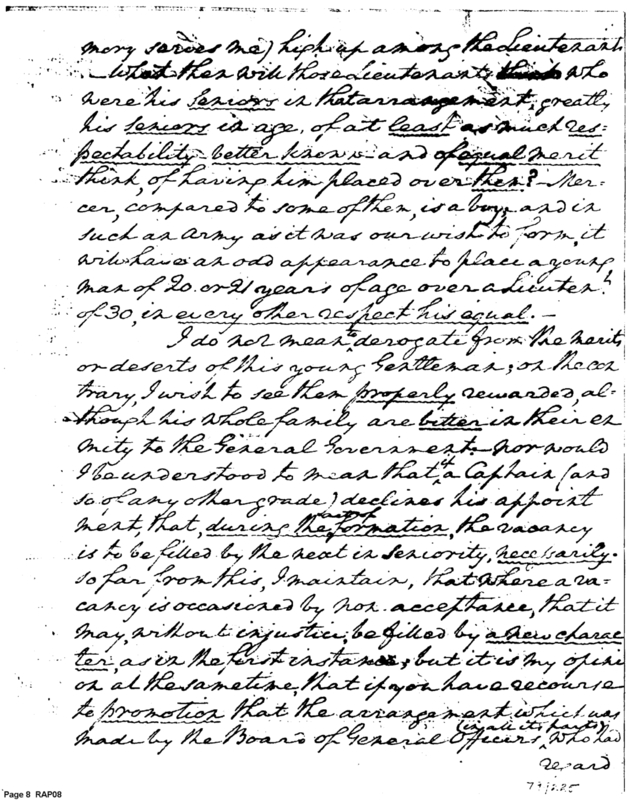 mory serves me) high up among the Lieutenants
– What then will those Lieutenants who
were his Seniors in that arrangement, greatly
his seniors in age, of at least as much res-
pectability – better known – and of equal merit
think, of having him placed over them? – Mer-
cer, compared to some of them, is a boy; and in
such an Army as it was our wish to form, it
will have an odd appearance to place a young
man of 20 or 21 years of age over a Lieutent
of 30, in every other respect his equal. –
I do not mean to derogate from the merits
or deserts of this young Gentleman; on the con
trary, I wish to see them properly rewarded, al-
though his whole family are bitter in their en
mity to the General Government. – nor would
I be understood to mean that if a Captain (and
so, of any other grade) declines his appoint
ment, that, during the act of formation, the vacancy
is to be filled by the next in seniority, necessarily.
so far from this, I maintain, that where a va-
cancy is occasioned by non-acceptance, that it
may, without injustice, be filled by a new charac
ter, as in the first instance; but it is my opini
on at the same time, that if you have recourse
to promotion that the arrangement which was
made by the Board of General Officers (in all its parts) who had
regard
Page 8 RAP08